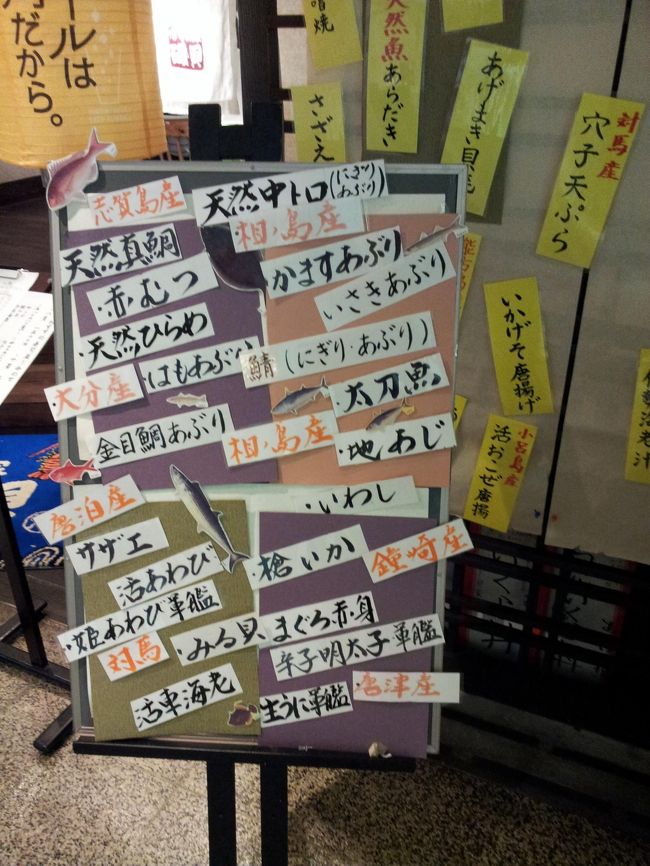 ールは
だから。
噌焼
天然魚あらだき
さざえ
あげまき貝
対馬産
穴子天ぷら
いかげそ唐揚げ
小呂島産
活おこぜ唐揚
志賀島産
天然中トロ(にぎりあぶり)
相ノ島産
天然真鯛
かますあぶり
赤むつ
いさきあぶり
・天然ひらめ
鯖(にぎり・あぶり)
・はもあぶり
大分産
・太刀魚
金目鯛あぶり
相ノ島産
・地あじ
・いわし
唐泊産
サザエ
槍いか
鐘崎産
活あわび
・姫あわび軍艦
・みる貝
まぐろ赤身
対馬
辛子明太子軍艦
活車海老
生うに軍艦
唐津産